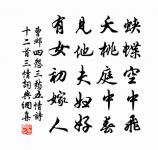 蛺蝶空中飛
夭桃庭中春
見他夫婦好
有女初嫁人
曹鄴四怨三愁五情詩
十二首三情詞典網集